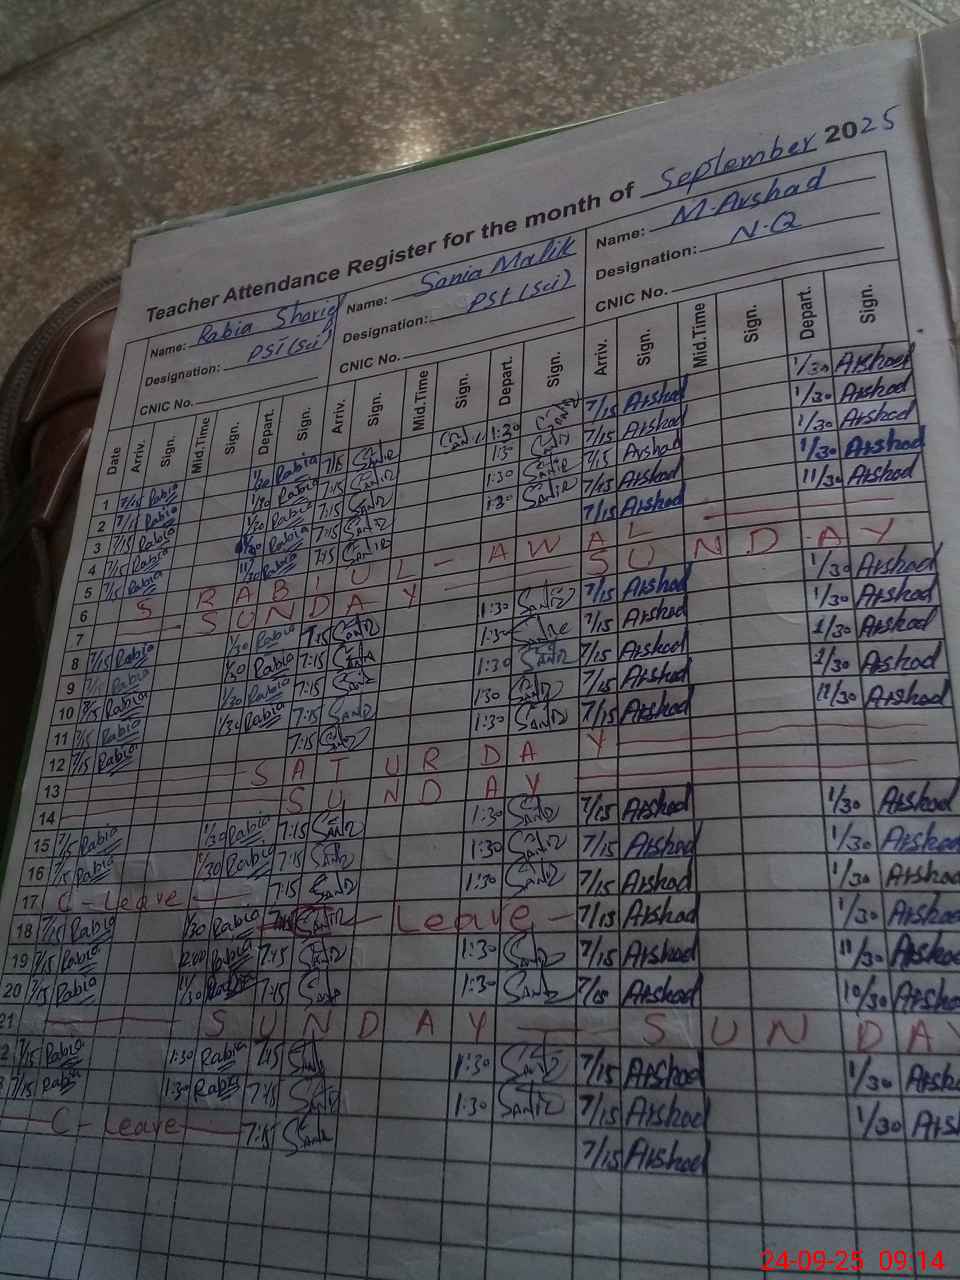 Teacher Attendance Register for the month of September 2025
Name: Rabia Sharif Name: Sania Malik Name: M. Arshad
Designation: PST (Sci) Designation: PSt (Sci) Designation: N.Q
CNIC No. CNIC No. CNIC No.
Date Arriv. Sign. Mid.Time Sign. Depart. Sign. Arriv. Sign. Mid.Time Sign. Depart. Sign. Arriv. Sign. Mid.Time Sign. Depart. Sign.
1 7/15 Rabia 1/30 Rabia 7:15 1:30 7/15 Arshad 1/30 Arshad
2 7/15 Rabia 1/30 Rabia 7:15 1:30 7/15 Arshad 1/30 Arshad
3 7/15 Rabia 1/30 Rabia 7:15 1:30 7/15 Arshad 1/30 Arshad
4 7/15 Rabia 1/30 Rabia 7:15 1:30 Arshad 1/30 Arshad
5 7/15 Rabia 11/30 Rabia 7:15 7/15 Arshad 11/30 Arshad
6 RABIUL-AWAL
7 SUNDAY SUNDAY
8 7/15 Rabia 1/30 Rabia 7:15 1:30 7/15 Arshad 1/30 Arshad
9 7/15 Rabia 1/30 Rabia 7:15 1:30 7/15 Arshad 1/30 Arshad
10 7/15 Rabia 1/30 Rabia 7:15 1:30 7/15 Arshad 1/30 Arshad
11 7/15 Rabia 1/30 Rabia 7:15 1:30 7/15 Arshad 1/30 Arshad
12 7/15 Rabia 7:15 1:30 7/15 Arshad 11/30 Arshad
13 SATURDAY
14 SUNDAY
15 7/15 Rabia 1/30 Rabia 7:15 1:30 7/15 Arshad 1/30 Arshad
16 7/15 Rabia 1/30 Rabia 7:15 1:30 7/15 Arshad 1/30 Arshad
17 C-Leave 7:15 1:30 7/15 Arshad 1/30 Arshad
18 7/15 Rabia 1/30 Rabia Leave 7/15 Arshad 1/30 Arshad
19 7/15 Rabia Rabia 7:15 1:30 7/15 Arshad 11/30 Arshad
20 7/15 Rabia 7:15 1:30 7/15 Arshad Arshad
21 SUNDAY SUNDAY
7/15 Rabia 1:30 Rabia 7:15 1:30 7/15 Arshad 1/30 Arshad
7/15 Rabia 1:30 Rabia 7:15 1:30 7/15 Arshad 1/30
C-Leave 7:15 7/15 Arshad
24-09-25 09:14